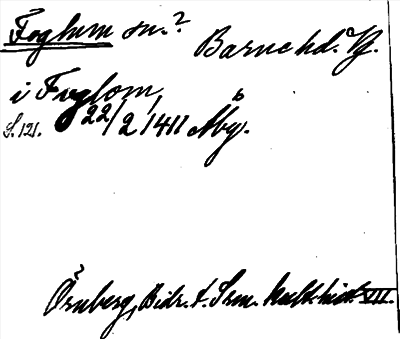 Foglum sn.? Barne hd. Vg.
i Fvglom,
S. 121. 22/2 1411 Åby.
Örnberg, Bidr. t. Srm. kult.hist. VII.